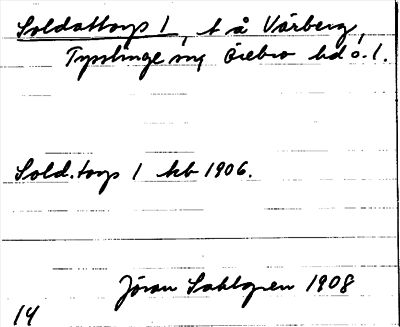 Soldattorp 1, t å Vårberg,
Tysslinge sn, Örebro hd ö. l.
Sold.torp 1 kb 1906.
Jöran Sahlgren 1908
14